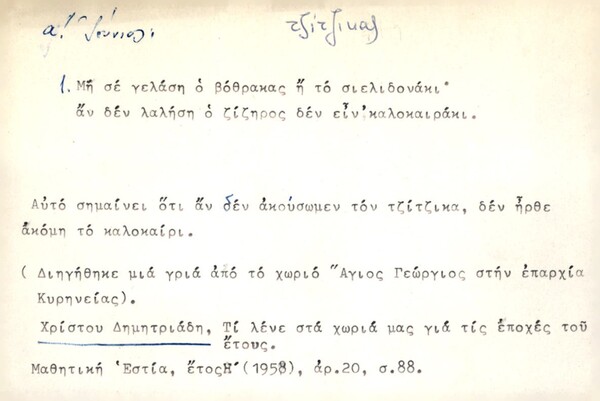 α! Ἰούνιος. τζίτζικας
1. Μή σέ γελάση ὁ βόθρακας ἤ τό σιελιδονάκι·
ἄν δέν λαλήση ὁ ζίζηρος δέν εἶν' καλοκαιράκι.
Αὐτό σημαίνει ὅτι ἄν δέν ἀκούσωμεν τόν τζίτζικα, δέν ἦρθε
ἀκόμη τό καλοκαίρι.
( Διηγήθηκε μιά γριά ἀπό τό χωριό Ἅγιος Γεώργιος στήν ἐπαρχία
Κυρηνείας).
Χρίστου Δημητριάδη, Τί λένε στά χωριά μας γιά τίς ἐποχές τοῦ
ἔτους.
Μαθητική Ἑστία, ἔτος Η' (1958), ἀρ.20, σ.88.